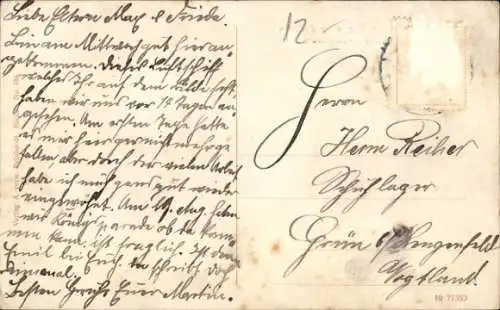 Liebe Eltern Max & Friede.
Bin am Mittwoch gut hier an-
gekommen. Dieses Luftschiff
welches Ihr auf dem Bilde seht
haben wir uns vor 14 Tagen an-
gesehen. Am ersten Tage hatte
es mir hier gar nicht mehr ge
fallen aber durch der vielen Arbeit
habe ich mich ganz gut wieder
eingewöhnt. Am 19. Aug. haben
wir Königsparade ob du kom-
men kann, ist fraglich. Ist den
Emil bei Euch. der schreibt doch
einmal.
Besten Gruß Euer Martin.
12
Herrn
Herm Reiher
Schuhlager
Grün b/ Lengenfeld
Vogtland.
10 71353